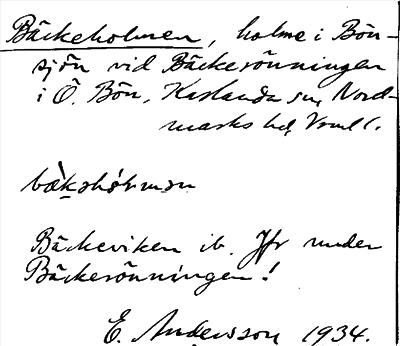 Bäckeholmen, holme i Bön-
sjön vid Bäckerönningen
i Ö. Bön, Karlanda sn, Nord-
marks hd, Vrml.
Bäckeviken ib. Jfr under
Bäckerönningen!
E. Andersson 1934.